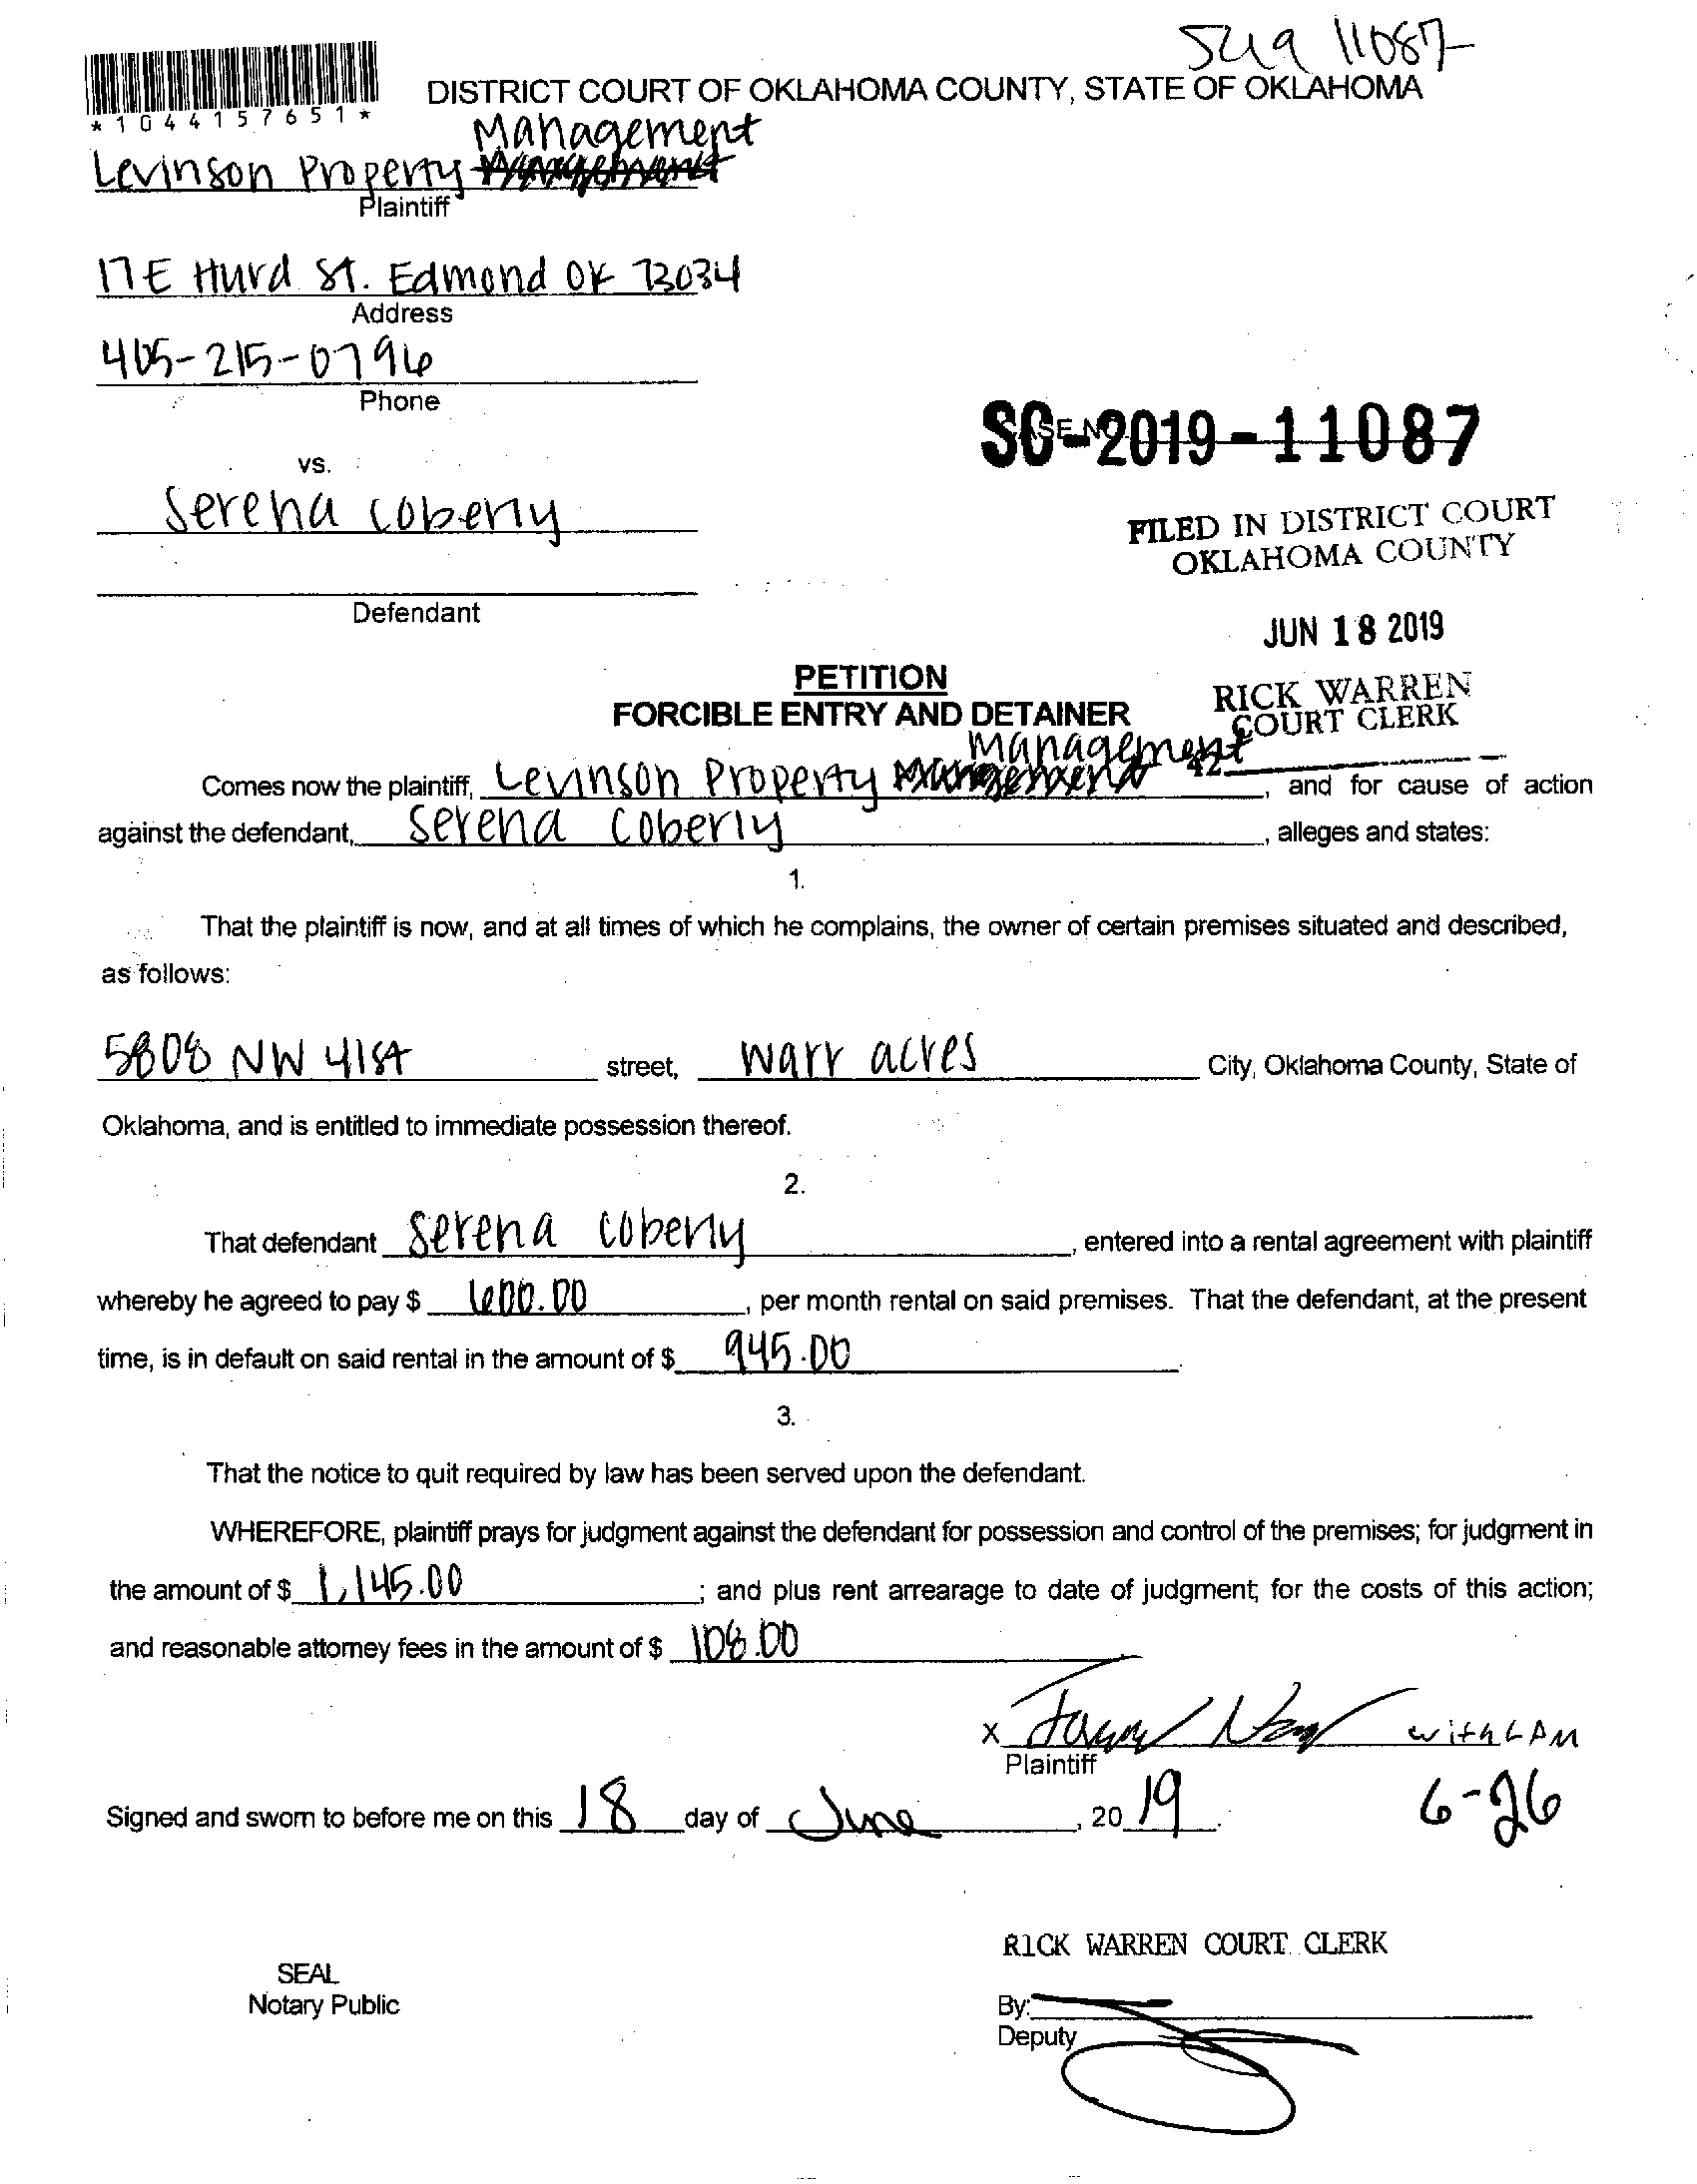 SC19 11087
*1044157651*
DISTRICT COURT OF OKLAHOMA COUNTY, STATE OF OKLAHOMA
Management
Levinson Property
Plaintiff
17 E Hurd St. Edmond OK 73034
Address
405-215-0796
Phone
SC-2019-11087
vs.
Serena Coberly
FILED IN DISTRICT COURT
OKLAHOMA COUNTY
Defendant
JUN 18 2019
PETITION
FORCIBLE ENTRY AND DETAINER
RICK WARREN
COURT CLERK
42
Management
Comes now the plaintiff, Levinson Property , and for cause of action
against the defendant, Serena Coberly , alleges and states:
1.
That the plaintiff is now, and at all times of which he complains, the owner of certain premises situated and described,
as follows:
5808 NW 41st street, Warr acres City, Oklahoma County, State of
Oklahoma, and is entitled to immediate possession thereof.
2.
That defendant Serena Coberly , entered into a rental agreement with plaintiff
whereby he agreed to pay $ 600.00 , per month rental on said premises. That the defendant, at the present
time, is in default on said rental in the amount of $ 945.00 .
3.
That the notice to quit required by law has been served upon the defendant.
WHEREFORE, plaintiff prays for judgment against the defendant for possession and control of the premises; for judgment in
the amount of $ 1,145.00 ; and plus rent arrearage to date of judgment; for the costs of this action;
and reasonable attorney fees in the amount of $ 108.00
X with LPM
Plaintiff
Signed and sworn to before me on this 18 day of June , 20 19 . 6-26
RICK WARREN COURT CLERK
SEAL
Notary Public
By:
Deputy